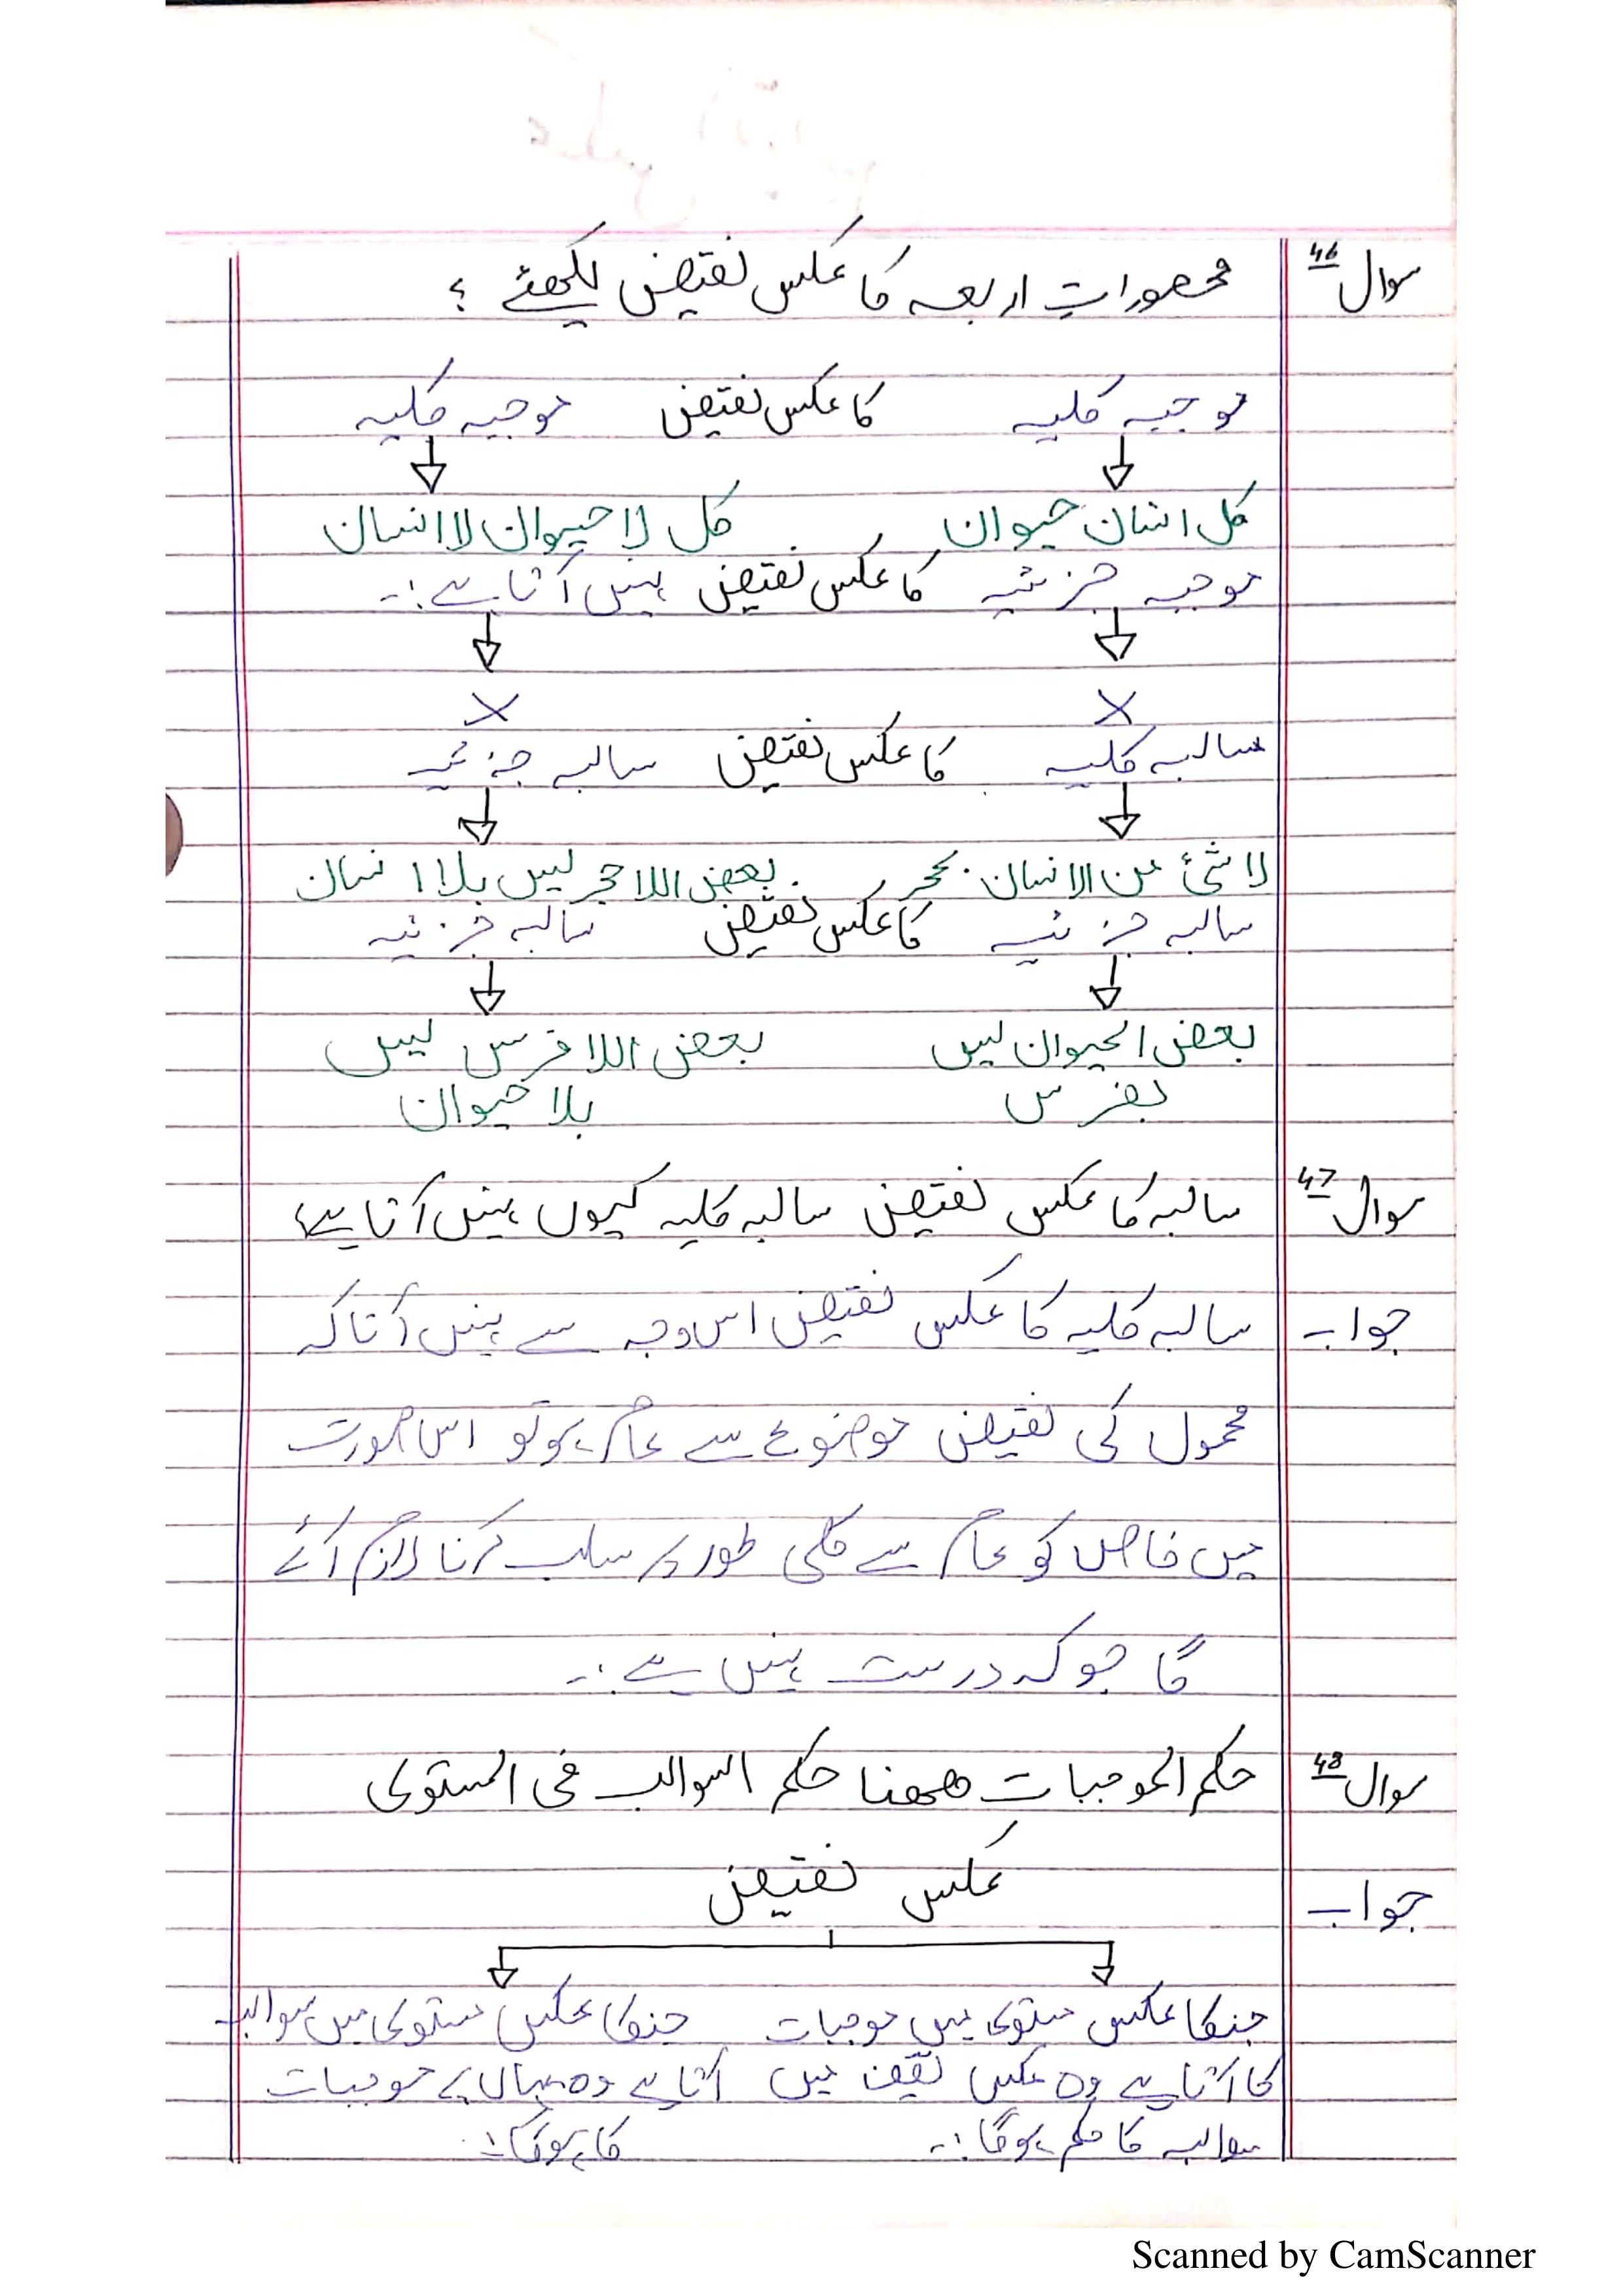 سوال 46 محصوراتِ اربعہ کا عکس نقیض لکھئے ؟
موجبہ کلیہ کا عکس نقیض موجبہ کلیہ
کل انسان حیوان کل لا حیوان لا انسان
موجبہ جزئیہ کا عکس نقیض نہیں آتا ہے :۔
X X
سالبہ کلیہ کا عکس نقیض سالبہ جزئیہ
لا شئ من الانسان بحجر بعض اللا حجر لیس بلا انسان
سالبہ جزئیہ کا عکس نقیض سالبہ جزئیہ
بعض الحیوان لیس بعض اللا فرس لیس
بفرس بلا حیوان
سوال 47 سالبہ کا عکس نقیض سالبہ کلیہ کیوں نہیں آتا ہے؟
جواب سالبہ کلیہ کا عکس نقیض اس وجہ سے نہیں آتا کہ
محمول کی نقیض موضوع سے عام ہو تو اس صورت
میں خاص کو عام سے کلی طور پر سلب کرنا لازم آئے
گا جو کہ درست نہیں ہے :۔
سوال 48 حکم الموجبات ھھنا حکم السوالب فی المستوی
جواب عکس نقیض
جنکا عکس مستوی میں موجبات جنکا عکس مستوی میں سوالب
کا آتا ہے وہ عکس نقیض میں آتا ہے وہ یہاں پے موجبات
سوالب کا حکم ہوگا :۔ کا ہوگا :۔
Scanned by CamScanner